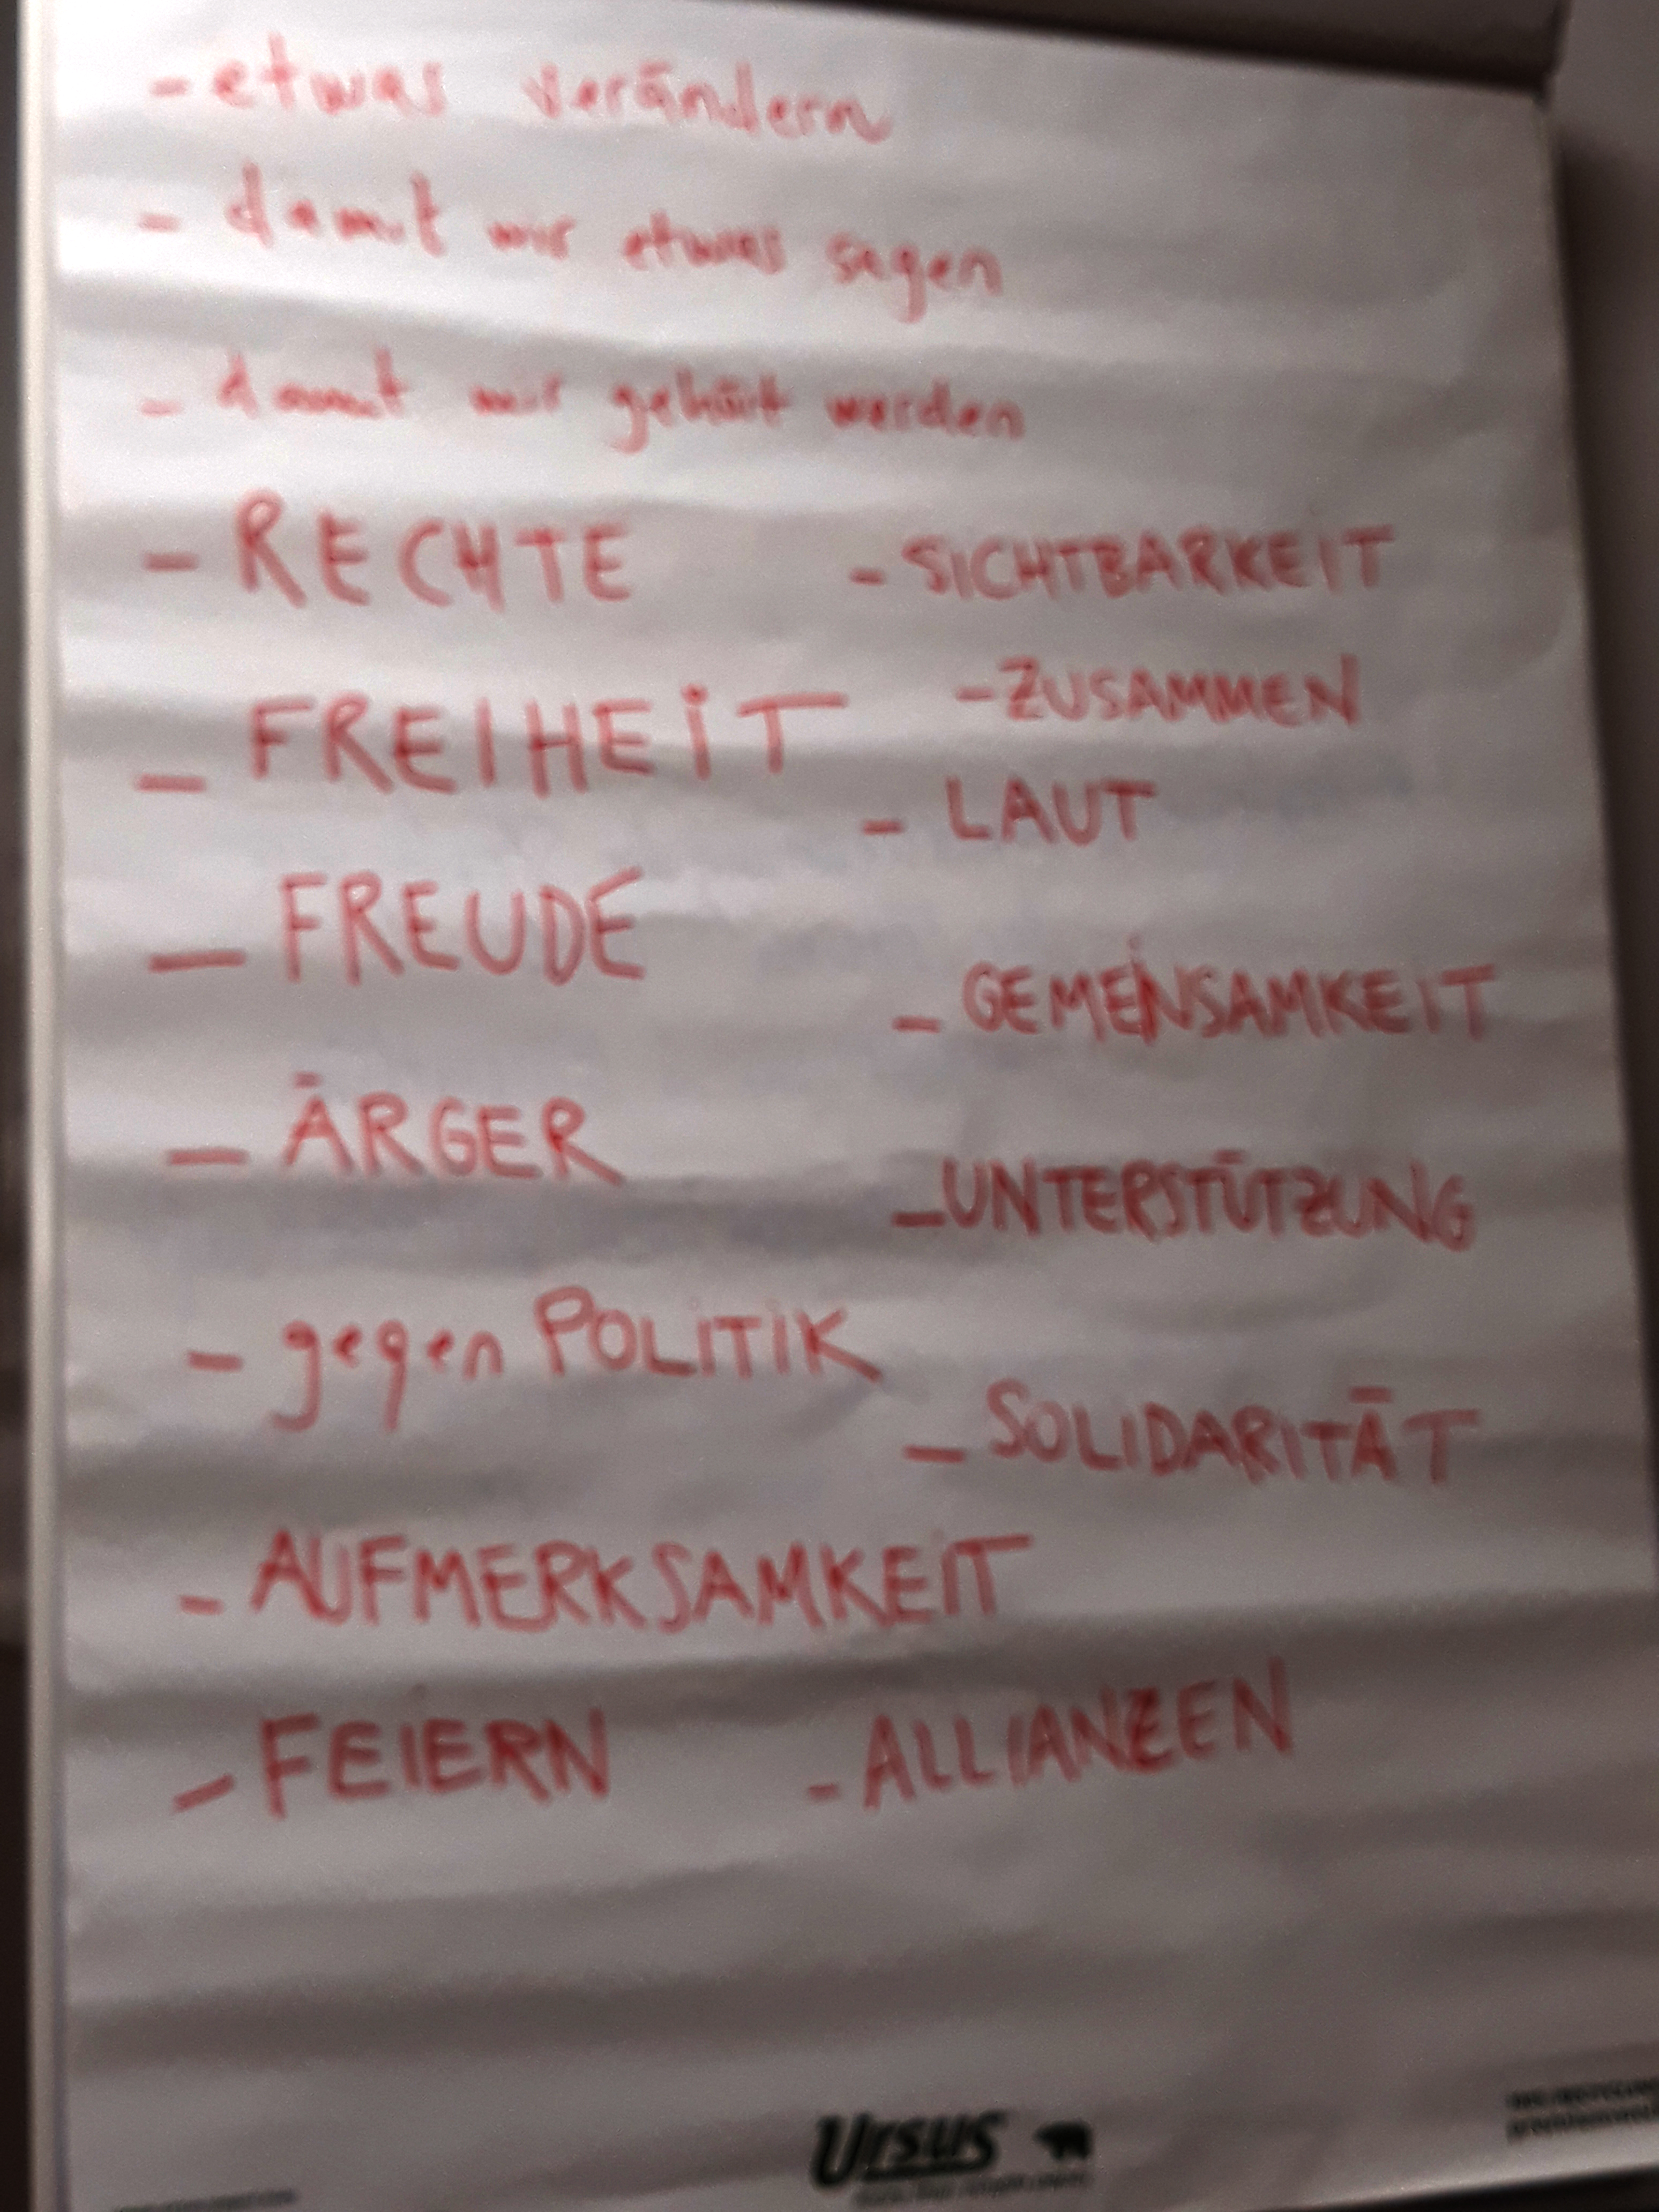 - etwas verändern
- damit wir etwas sagen
- damit wir gehört werden
- RECHTE
- FREIHEIT
- FREUDE
- ÄRGER
- gegen POLITIK
- AUFMERKSAMKEIT
- FEIERN
- SICHTBARKEIT
- ZUSAMMEN
- LAUT
- GEMEINSAMKEIT
- UNTERSTÜTZUNG
- SOLIDARITÄT
- ALLIANZEN
Ursus